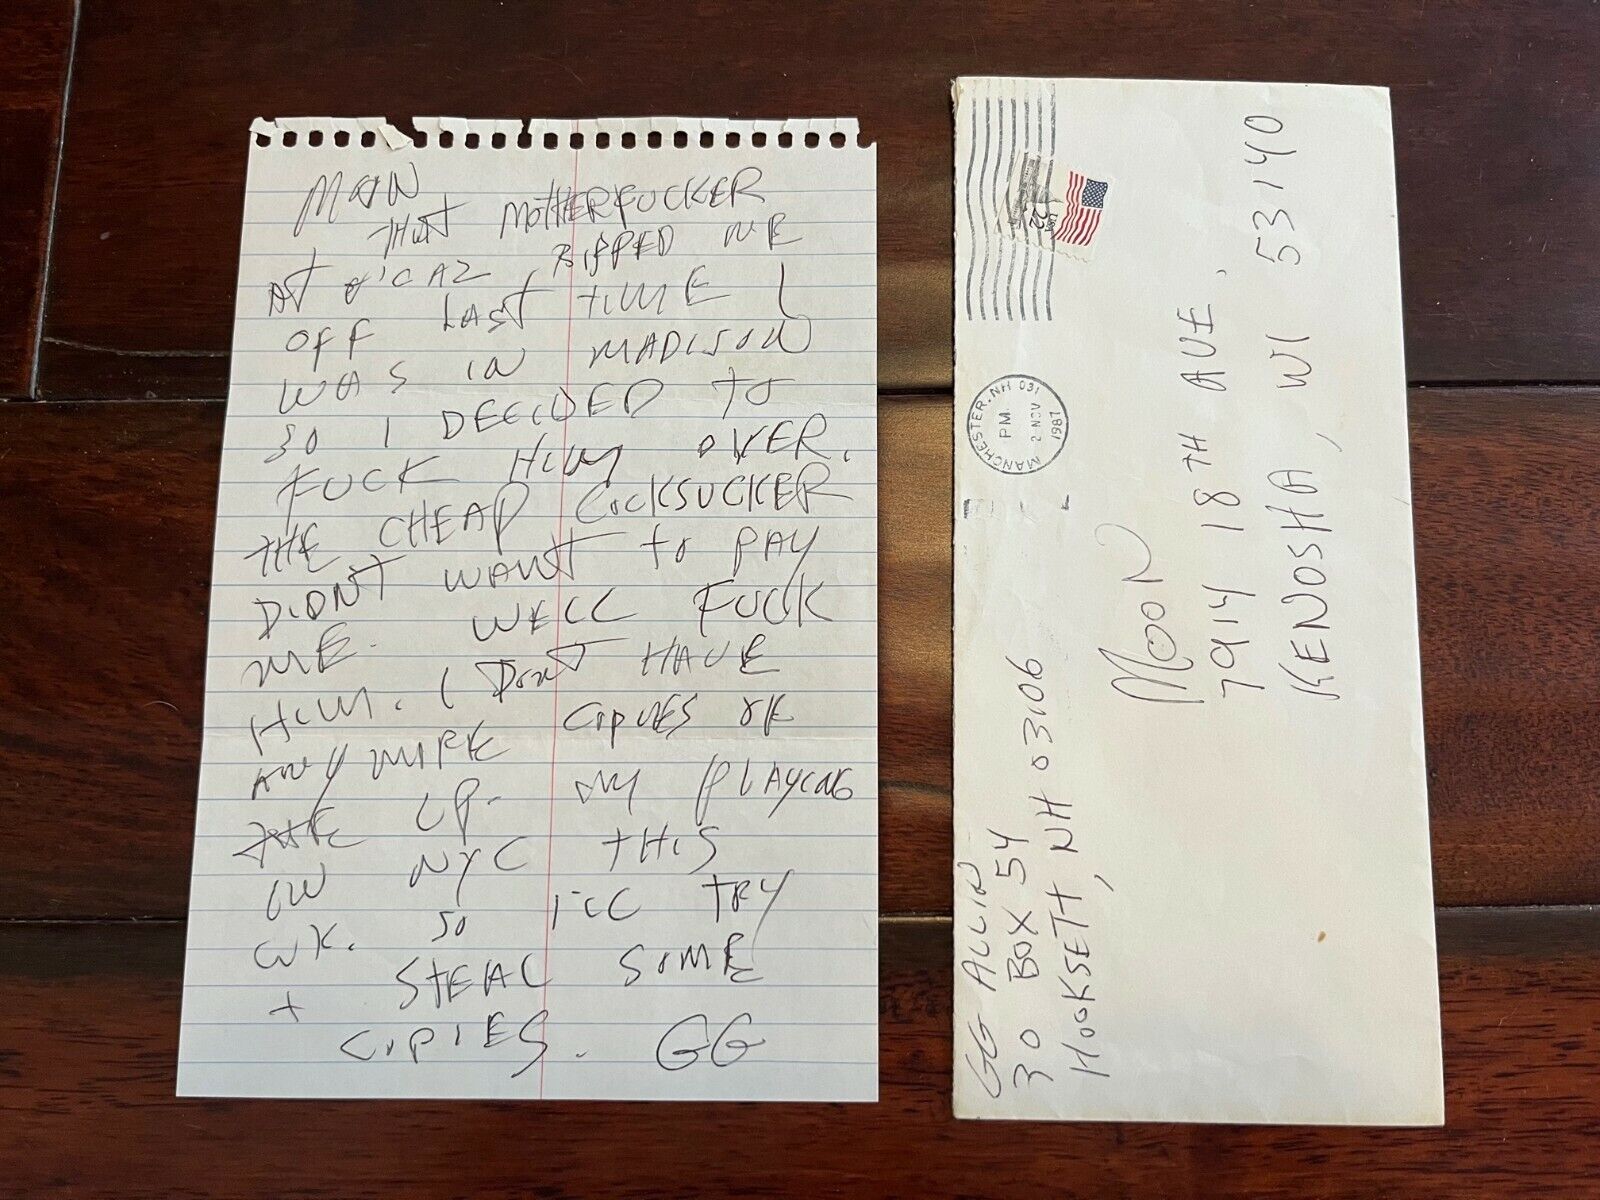 MAN
THAT MOTHERFUCKER
AT RIPPED ME
OFF LAST TIME I
WAS IN MADISON
SO I DECIDED TO
FUCK HIM OVER.
THE CHEAP COCKSUCKER
DIDNT WANT TO PAY
ME. WELL FUCK
HIM. I DONT HAVE
ANY MORE COPIES OF
THE LP. IM PLAYING
IN NYC THIS
WK. SO I'LL TRY
+ STEAL SOME
COPIES. GG
GG ALLIN
30 BOX 54
HOOKSETT, NH 03106
MOON
7914 18TH AVE.
KENOSHA, WI 53140
MANCHESTER, NH 031
PM
2 NOV
1987
USA
22